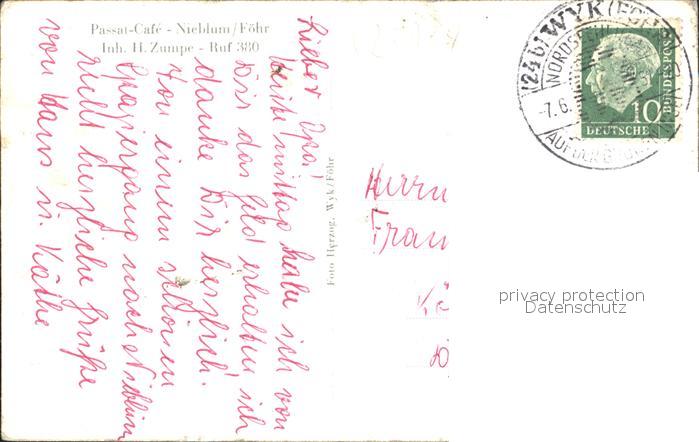 Passat-Café - Nieblum/Föhr
Inh. H. Zumpe - Ruf 380
Lieber Opa!
Heute mittag habe ich von
Dir das Geld erhalten ich
danke Dir herzlich.
Von einem schönen
Spaziergang nach Nieblum
recht herzliche Grüße
von Hans u. Käthe
Foto Herzog, Wyk/Föhr
Herrn
Fran
Kö
(24b) WYK (FÖHR)
NORDSEE
-7.6.
AUF DER
10
DEUTSCHE
BUNDESPOST
privacy protection
Datenschutz